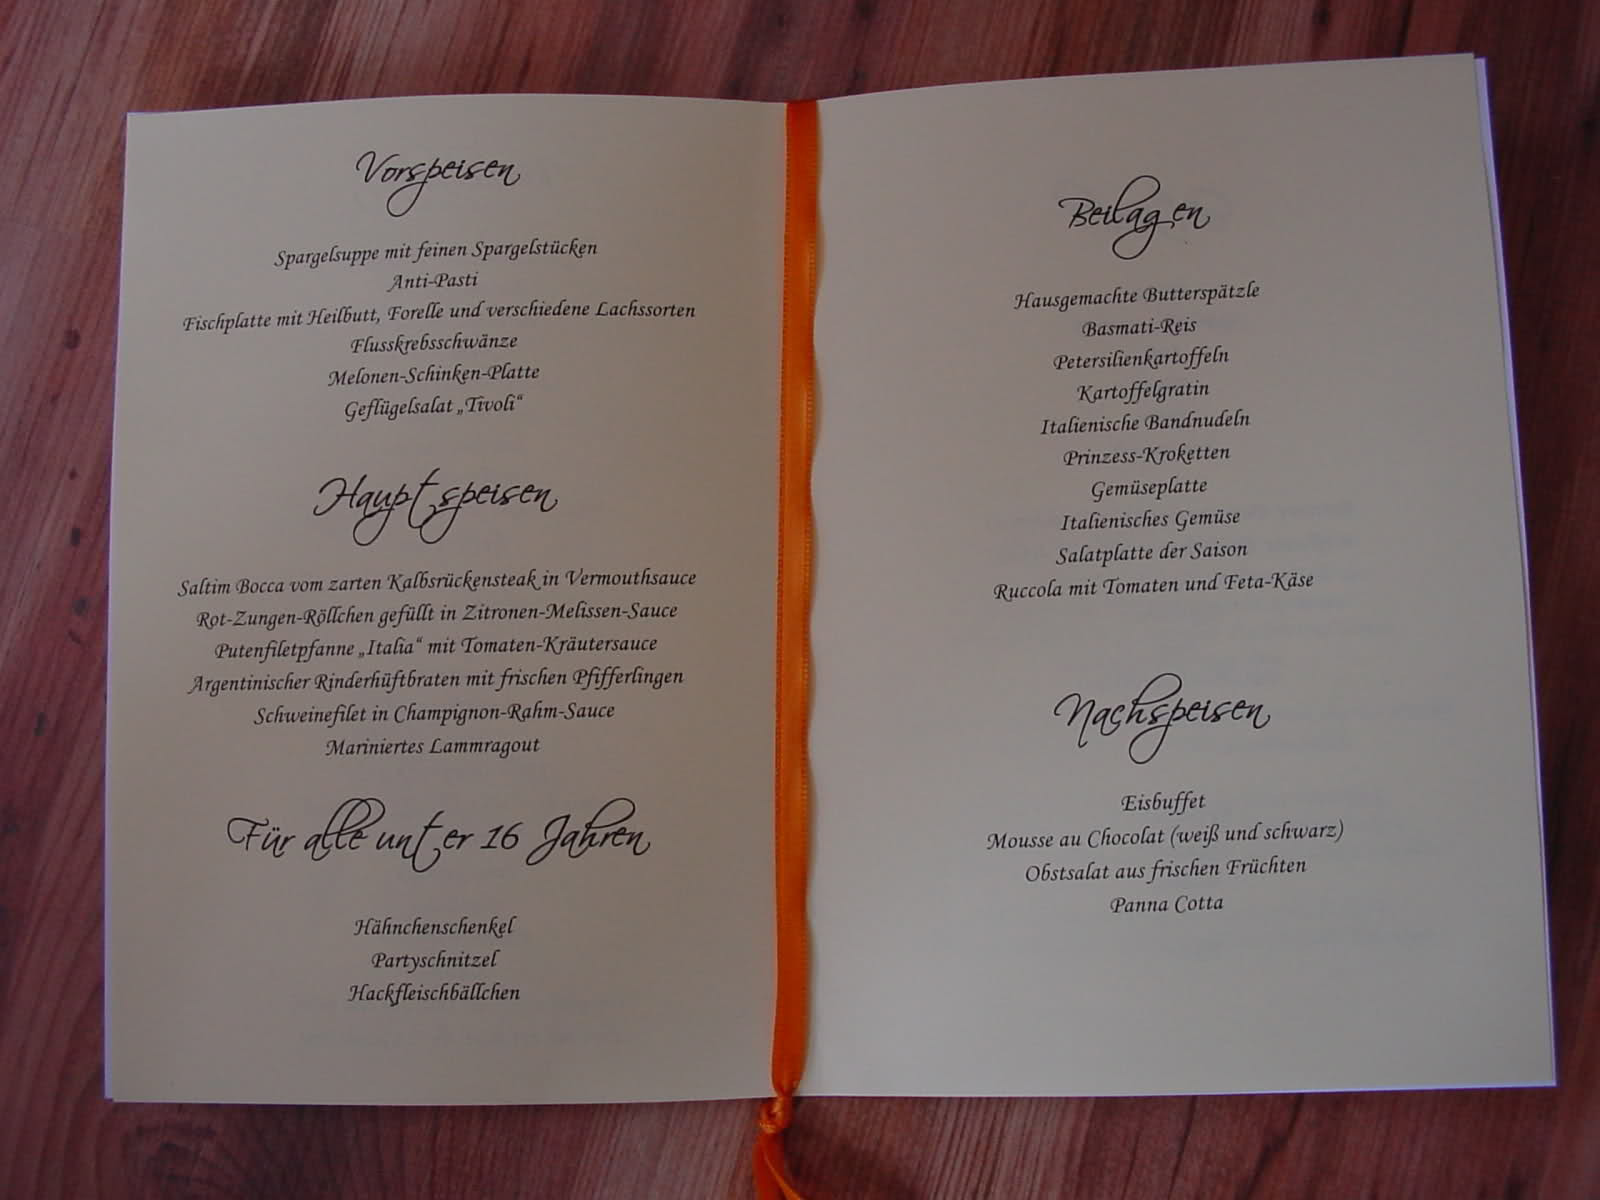 Vorspeisen
Spargelsuppe mit feinen Spargelstücken
Anti-Pasti
Fischplatte mit Heilbutt, Forelle und verschiedene Lachssorten
Flusskrebsschwänze
Melonen-Schinken-Platte
Geflügelsalat „Tivoli“
Hauptspeisen
Saltim Bocca vom zarten Kalbsrückensteak in Vermouthsauce
Rot-Zungen-Röllchen gefüllt in Zitronen-Melissen-Sauce
Putenfiletpfanne „Italia“ mit Tomaten-Kräutersauce
Argentinischer Rinderhüftbraten mit frischen Pfifferlingen
Schweinefilet in Champignon-Rahm-Sauce
Mariniertes Lammragout
Für alle unter 16 Jahren
Hähnchenschenkel
Partyschnitzel
Hackfleischbällchen
Beilagen
Hausgemachte Butterspätzle
Basmati-Reis
Petersilienkartoffeln
Kartoffelgratin
Italienische Bandnudeln
Prinzess-Kroketten
Gemüseplatte
Italienisches Gemüse
Salatplatte der Saison
Ruccola mit Tomaten und Feta-Käse
Nachspeisen
Eisbuffet
Mousse au Chocolat (weiß und schwarz)
Obstsalat aus frischen Früchten
Panna Cotta